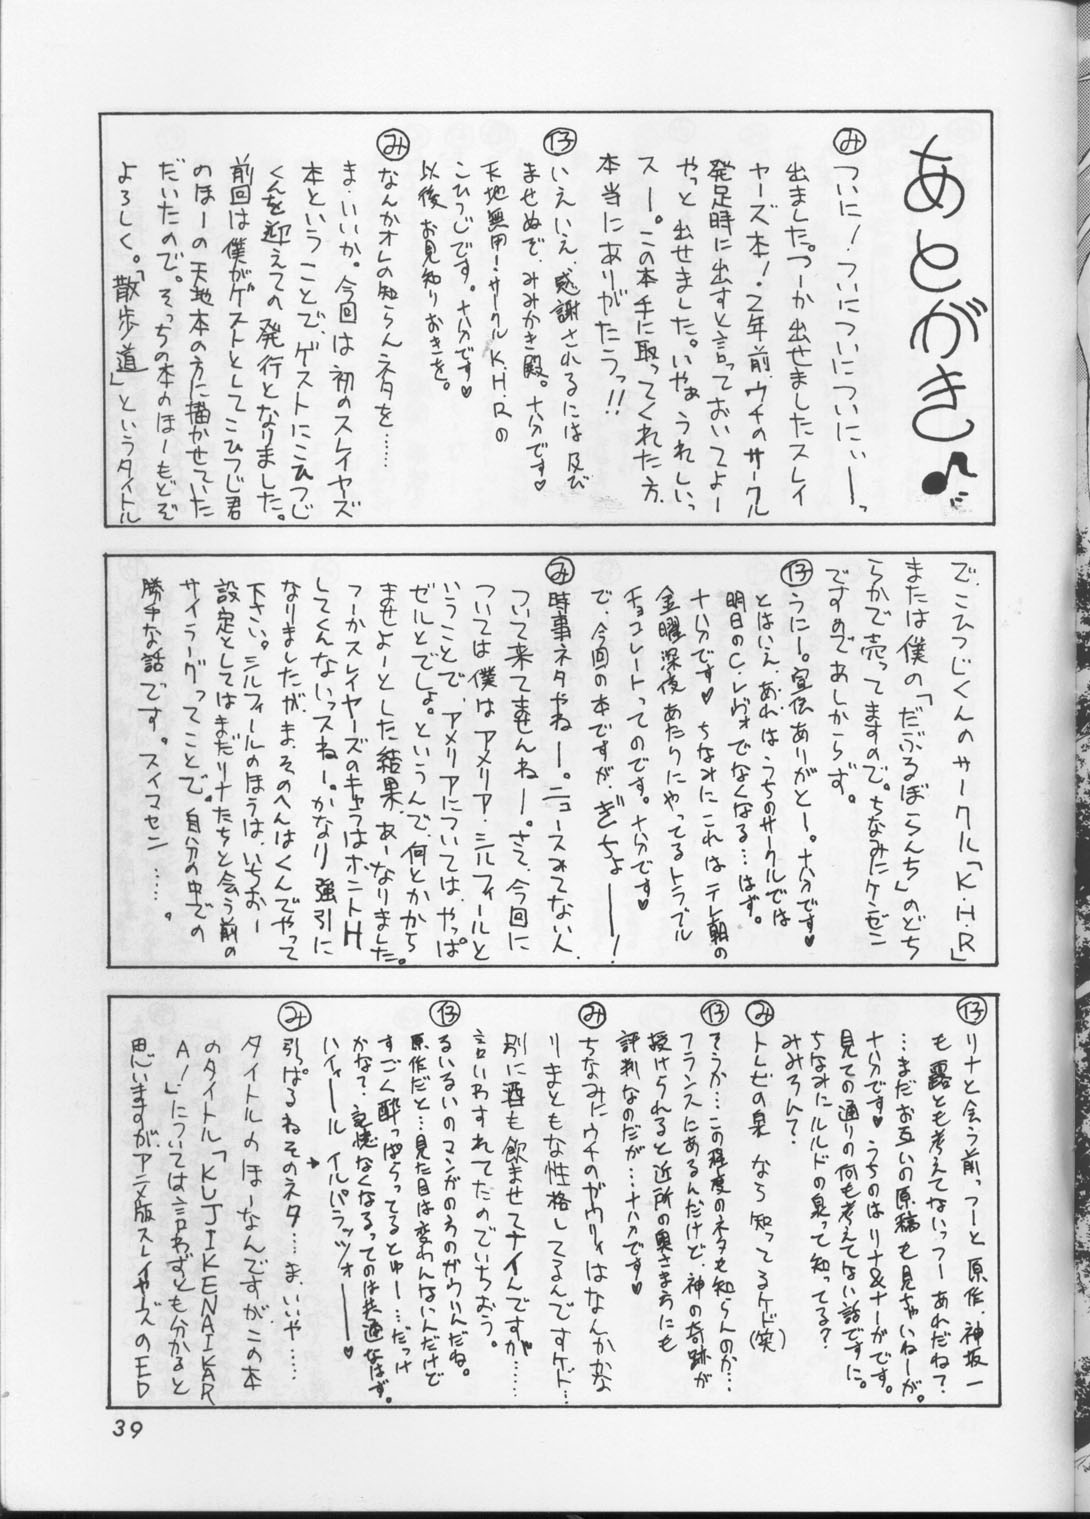 あとがき♪
み ついに！ついについについにぃ——っ
出ました。つーか出せましたスレイ
ヤーズ本！2年前、ウチのサークル
発足時に出すと言っておいてよー
やっと出せました。いやぁ、うれしいっ
スー。この本手に取ってくれた方、
本当にありがたうっ!!
仔 いえいえ、感謝されるには及び
ませぬで、みみかき殿。十分です♥
天地無用！サークルK.H.Rの
こひつじです。十分です♥
以後お見知りおきを。
み なんかオレの知らんネタを……
ま、いいか。今回は初のスレイヤーズ
本ということで、ゲストにこひつじ
くんを迎えての発行となりました。
前回は僕がゲストとしてこひつじ君
のほーの天地本の方に描かせていた
だいたので。そっちの本のほーもどぞ
よろしく。「散歩道」というタイトル
で、こひつじくんのサークル「K.H.R」
または僕の「だぶるぼらんち」のどち
らかで売ってますので。ちなみにケンゼン
ですのであしからず。
仔 うにー。宣伝ありがとー。十分です♥
とはいえ、あれは、うちのサークルでは
明日のC.レヴォでなくなる…はず。
十分です♥ ちなみにこれはテレ朝の
金曜深夜あたりにやってるトラブル
チョコレートってのです。十分です♥
で、今回の本ですが、ぎちょ———！
み 時事ネタやねー。ニュースみてない人、
ついて来てませんねー。さて、今回に
ついては僕はアメリア・シルフィールと
いうことで、アメリアについては、やっぱ
ゼルとでしょ。というんで、何とかから
ませよーとした結果、あーなりました。
つーかスレイヤーズのキャラはホントH
してくんないっスねー。かなり強引に
なりましたが、ま、そのへんはくんでやって
下さい。シルフィールのほうは、いちおー
設定としてはまだリナたちと会う前の
サイラーグってことで。自分の中での
勝手な話です。スイマセン……。
仔 リナと会う前っつーと原作、神坂一
も露とも考えてないっつーあれだね？
…まだお互いの原稿も見ちゃいねーが。
十分です♥ うちのはリナ&ナーがです。
見ての通りの何も考えてない話ですに。
ちなみにルルドの泉って知ってる？
みみろんて？
み トレビの泉なら知ってるケド(笑)
仔 そうか…この程度のネタも知らんのか…
フランスにあるんだけど、神の奇跡が
授けられると近所の奥さま方にも
評判なのだが…十分です♥
み ちなみにウチのガウリィはなんかかな
りまともな性格してるんですケド…
別に酒も飲ませてナイんですが……
言いわすれてたのでいちおう。
仔 るいるいのマンガのろのガウリィだね。
原作だと…見た目は変わんないんだけど
すごく酔っぱらってるとゆー…だっけ
かな？記憶なくなるってのは共通なはず。
ハイィール イルパラッツォ———♥
み 引っぱるねそのネタ……ま、いいや……
タイトルのほーなんですが、この本
のタイトル「KUJIKENAIKAR
A！」については言わずとも分かると
思いますが、アニメ版スレイヤーズのED
39